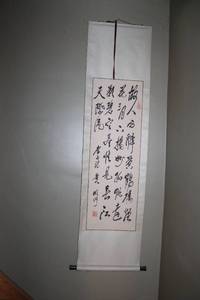 故人西辭黃鶴樓煙
花三月下揚州孤帆遠
影碧空盡惟見長江
天際流